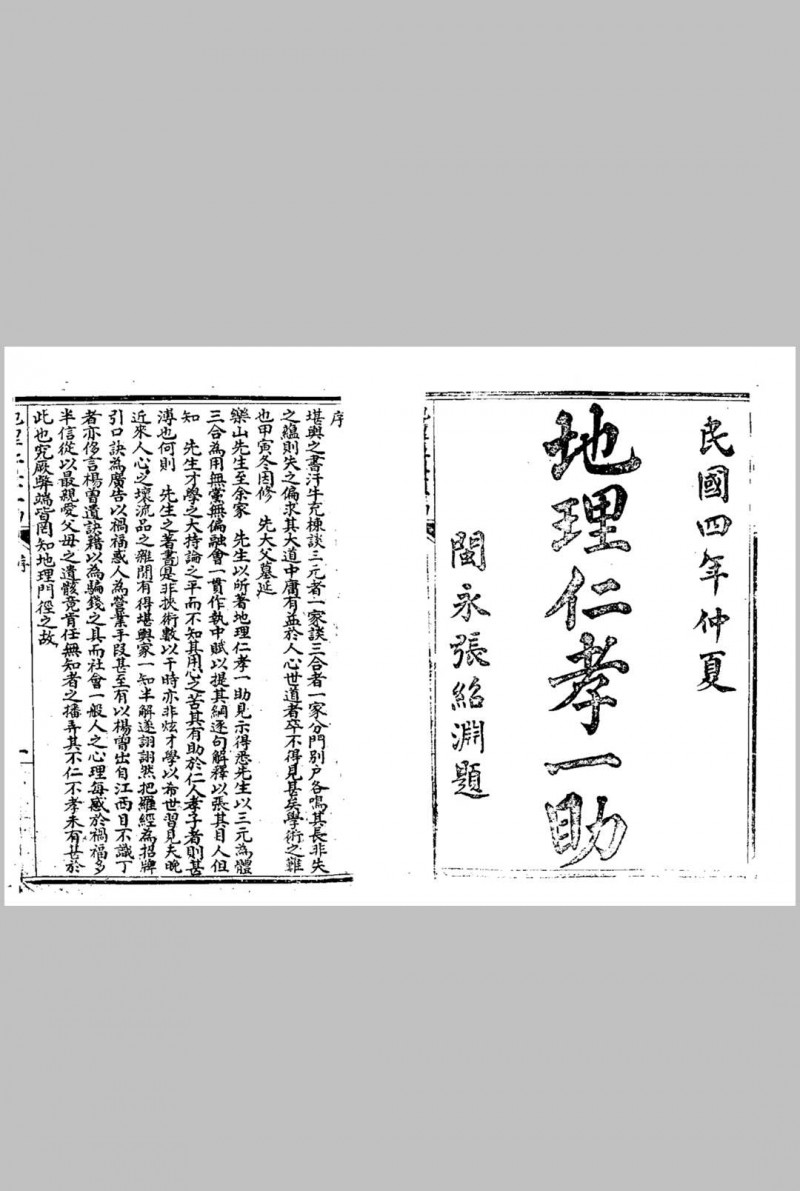 民國四年仲夏
地理仁孝一助
閩永張紹淵題
序
堪輿之書汗牛充棟談三元者一家談三合者一家分門別户各鳴其長非失
之蘊則失之偏求其大道中庸有益於人心世道者卒不得見甚矣學術之難
也甲寅冬因修　先大父墓延
樂山先生至余家　先生以所著地理仁孝一助見示得悉先生以三元為體
三合為用無黨無偏融會一貫作執中賦以提其綱逐句解釋以張其目人但
知　先生才學之大持論之平而不知其用心之苦其有助於仁人孝子者則甚
溥也何則　先生之著書是非挾術數以干時亦非炫才學以希世習見夫晚
近來人心之壞流品之雜間有得堪輿家一知半解遂詡詡然把羅經為招牌
引口訣為廣告以禍福惑人為營業手段甚至有以楊曾出自江西目不識丁
者亦侈言楊曾遺訣藉以為騙錢之具而社會一般人之心理每惑於禍福多
半信從以最親愛父母之遺骸竟肯任無知者之播弄其不仁不孝未有甚於
此也究厥弊端皆罔知地理門徑之故
序
一